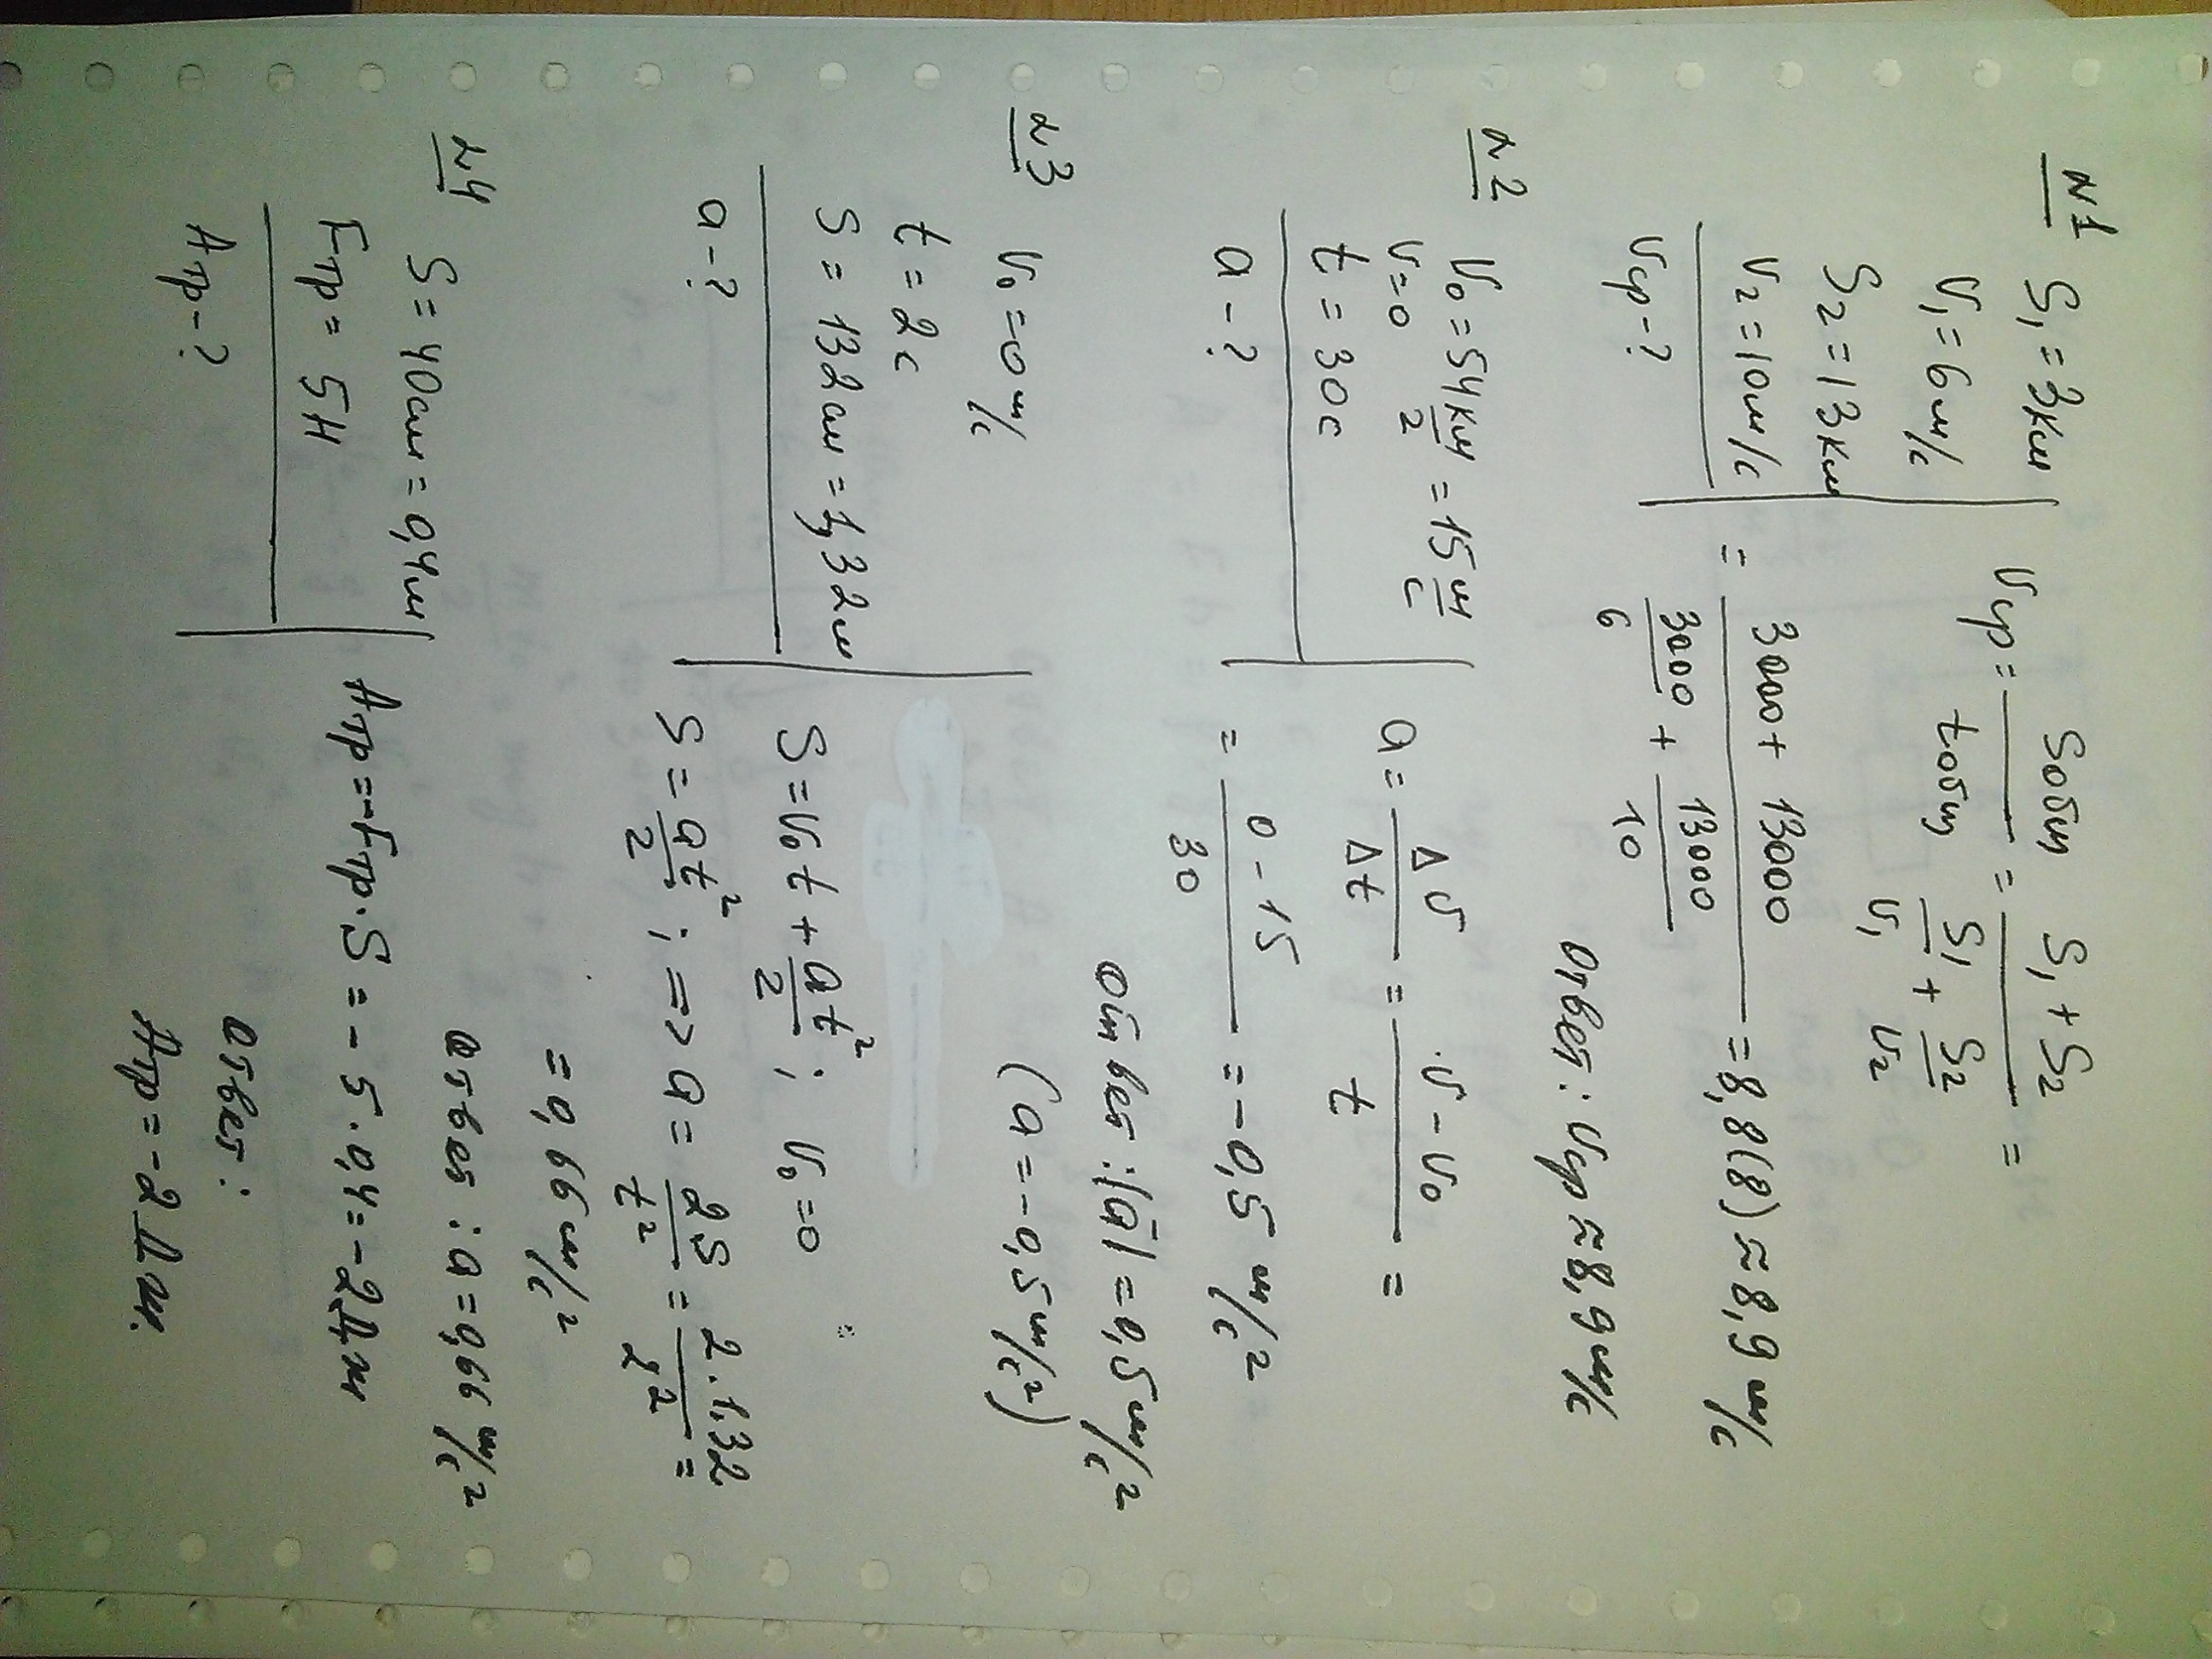 №1
S₁ = 3км
V₁ = 6 м/с
S₂ = 13км
V₂ = 10м/с
Vср - ?
Vср = Sобщ / tобщ = (S₁ + S₂) / (S₁/V₁ + S₂/V₂) =
= (3000 + 13000) / (3000/6 + 13000/10) = 8,8(8) ≈ 8,9 м/с
Ответ: Vср ≈ 8,9 м/с
№2
V₀ = 54 км/г = 15 м/с
V = 0
t = 30 с
a - ?
a = Δv / Δt = (v - v₀) / t =
= (0 - 15) / 30 = -0,5 м/с²
Ответ: |a̅| = 0,5 м/с²
(a = -0,5 м/с²)
№3
V₀ = 0 м/с
t = 2 с
S = 132см = 1,32м
a - ?
S = v₀t + at²/2 ; V₀ = 0
S = at²/2 ; => a = 2S/t² = 2·1,32/2² =
= 0,66 м/с²
Ответ: a = 0,66 м/с²
№4
S = 40см = 0,4м
Fтр = 5Н
Aтр - ?
Aтр = -Fтр·S = -5·0,4 = -2Дж
Ответ:
Aтр = -2Дж.